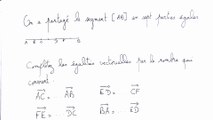 On a partagé le segment [AB] en sept parties égales
A E C D F B
Compléter les égalités vectorielles par le nombre qui
convient
AC = AB ED = CF
FE = DC BA = ED